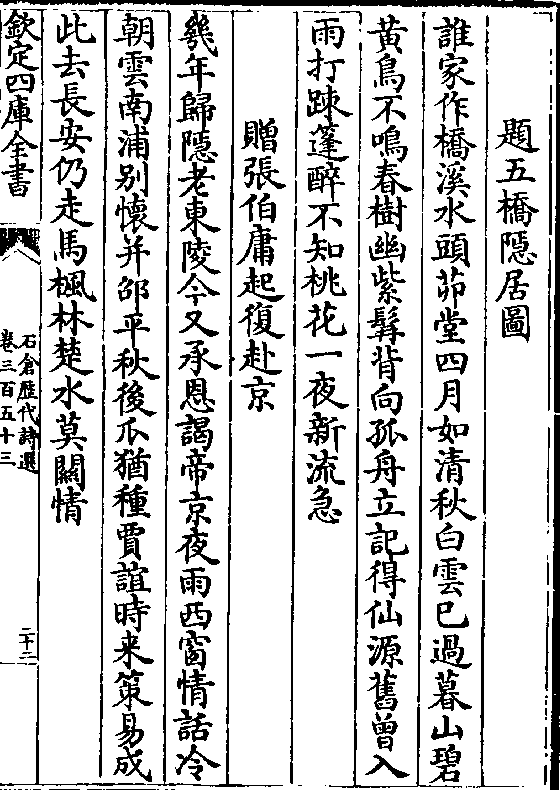 題五橋隱居圖
誰家作橋溪水頭茆堂四月如清秋白雲已過暮山碧
黃鳥不鳴春樹幽紫髯背向孤舟立記得仙源舊曾入
雨打踈蓬醉不知桃花一夜新流急
贈張伯庸起復赴京
幾年歸隱老東陵今又承恩謁帝京夜雨西窗情話冷
朝雲南浦別懷并邵平秋後瓜猶種賈誼時来策易成
此去長安仍走馬楓林楚水莫關情
欽定四庫全書
石倉歷代詩選
卷三百五十三
二十二